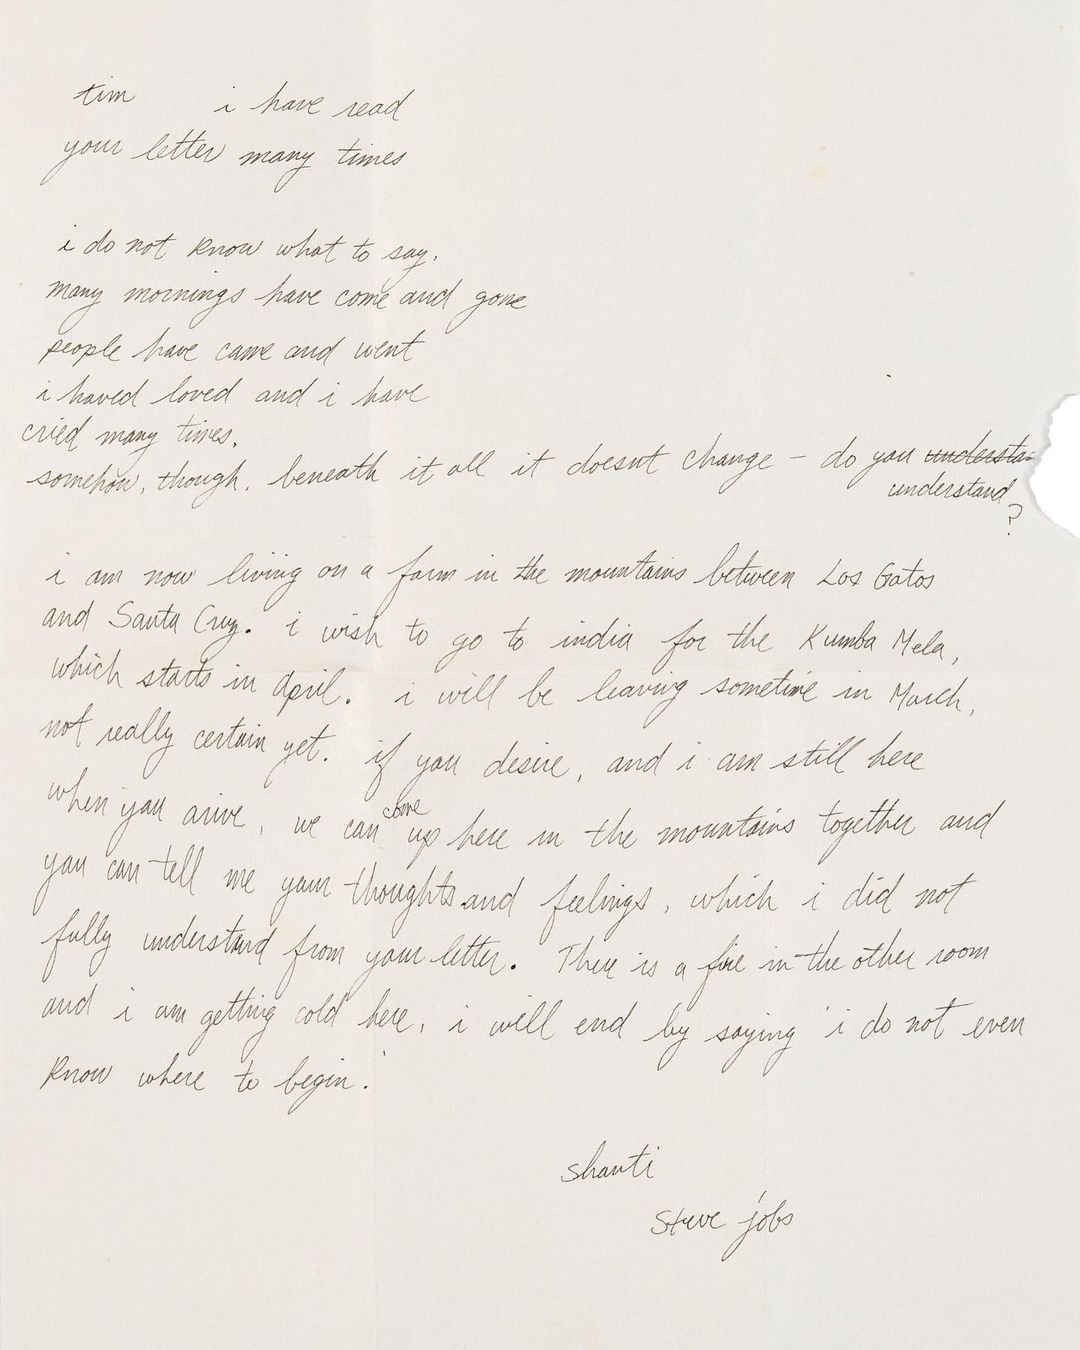 tim i have read
your letter many times
i do not know what to say.
many mornings have come and gone
people have came and went
i haved loved and i have
cried many times.
somehow, though, beneath it all it doesnt change – do you understan
understand
?
i am now living on a farm in the mountains between Los Gatos
and Santa Cruz. i wish to go to india for the Kumba Mela,
which starts in April. i will be leaving sometime in March,
not really certain yet. if you desire, and i am still here
when you arive, we can come up here in the mountains together and
you can tell me your thoughts and feelings, which i did not
fully understand from your letter. There is a fire in the other room
and i am getting cold here, i will end by saying 'i do not even
know where to begin.'
shanti
steve jobs